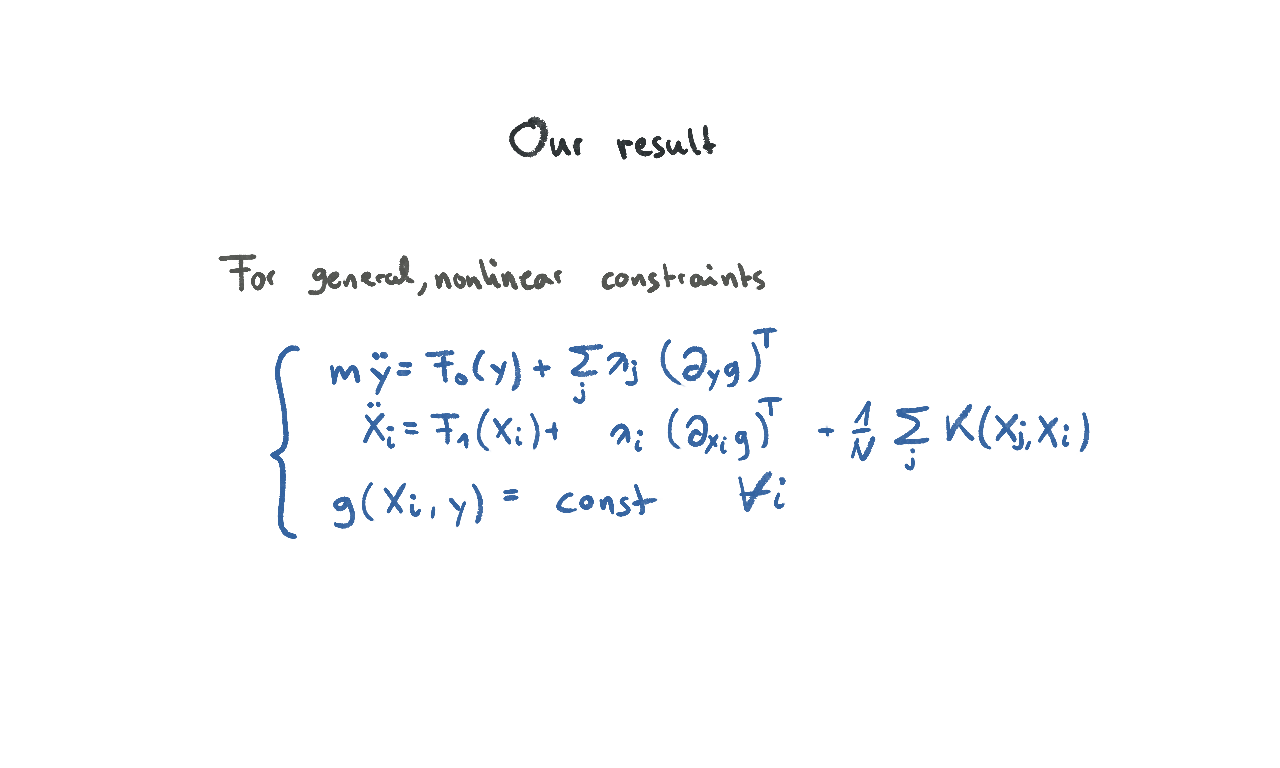 Our result
For general, nonlinear constraints
mÿ = F₀(y) + Σⱼ λⱼ (∂_y g)ᵀ
Ẍᵢ = F₁(Xᵢ) + λᵢ (∂_{Xᵢ} g)ᵀ - 1/N Σⱼ K(Xⱼ, Xᵢ)
g(Xᵢ, y) = const ∀i